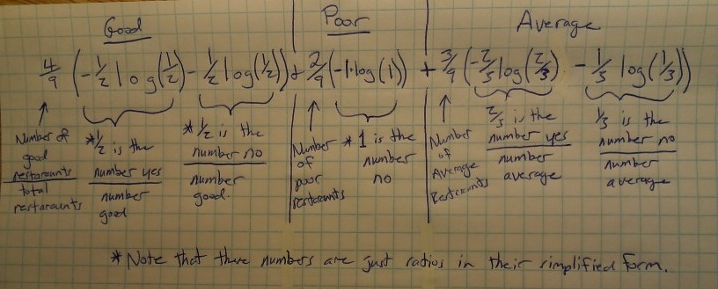 Good Poor Average
4/9 (-1/2 log(1/2) - 1/2 log(1/2)) + 2/9 (-1·log(1)) + 3/9 (-2/3 log(2/3) - 1/3 log(1/3))
Number of
good
restaraunts
total
restaraunts
*1/2 is the
number yes
number
good
*1/2 is the
number no
number
good.
Number
of
poor
restaraunts
* 1 is the
number
no
Number
of
Average
Restraunts
2/3 is the
number yes
number
average
1/3 is the
number no
number
average
* Note that these numbers are just ratios in their simplified form.